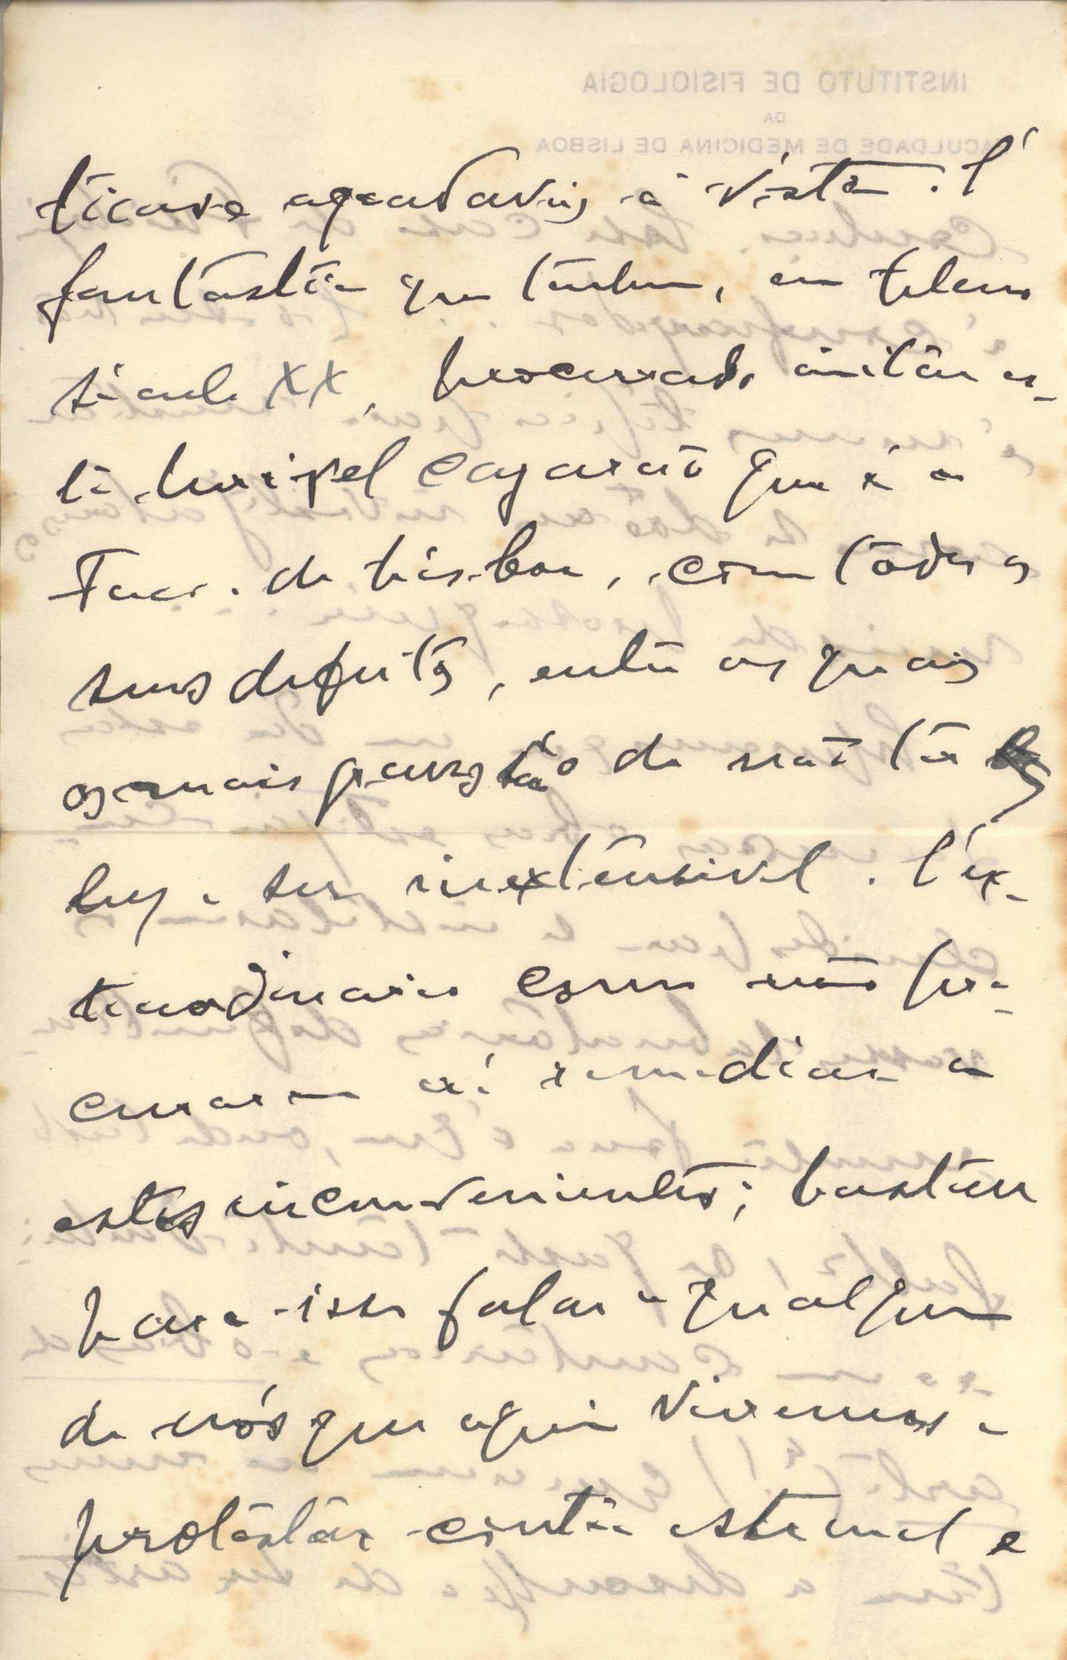 INSTITUTO DE FISIOLOGIA
DA
FACULDADE DE MEDICINA DE LISBOA
ticare agradaveis á vista. É
fantástico que tenham, em pleno
século XX, procurado imitar es-
te horrivel cagarão que é a
Fac. de Lisboa, com todos os
seus defeitos, entre os quais
os mais graves são o de não ter
luz e ser inextensivel. É ex-
traordinario como não pro-
curaram aí remediar a
estes inconvenientes; bastava
para isso falar a qualquer
de nós que aqui vivemos a
protestar contra este mal e